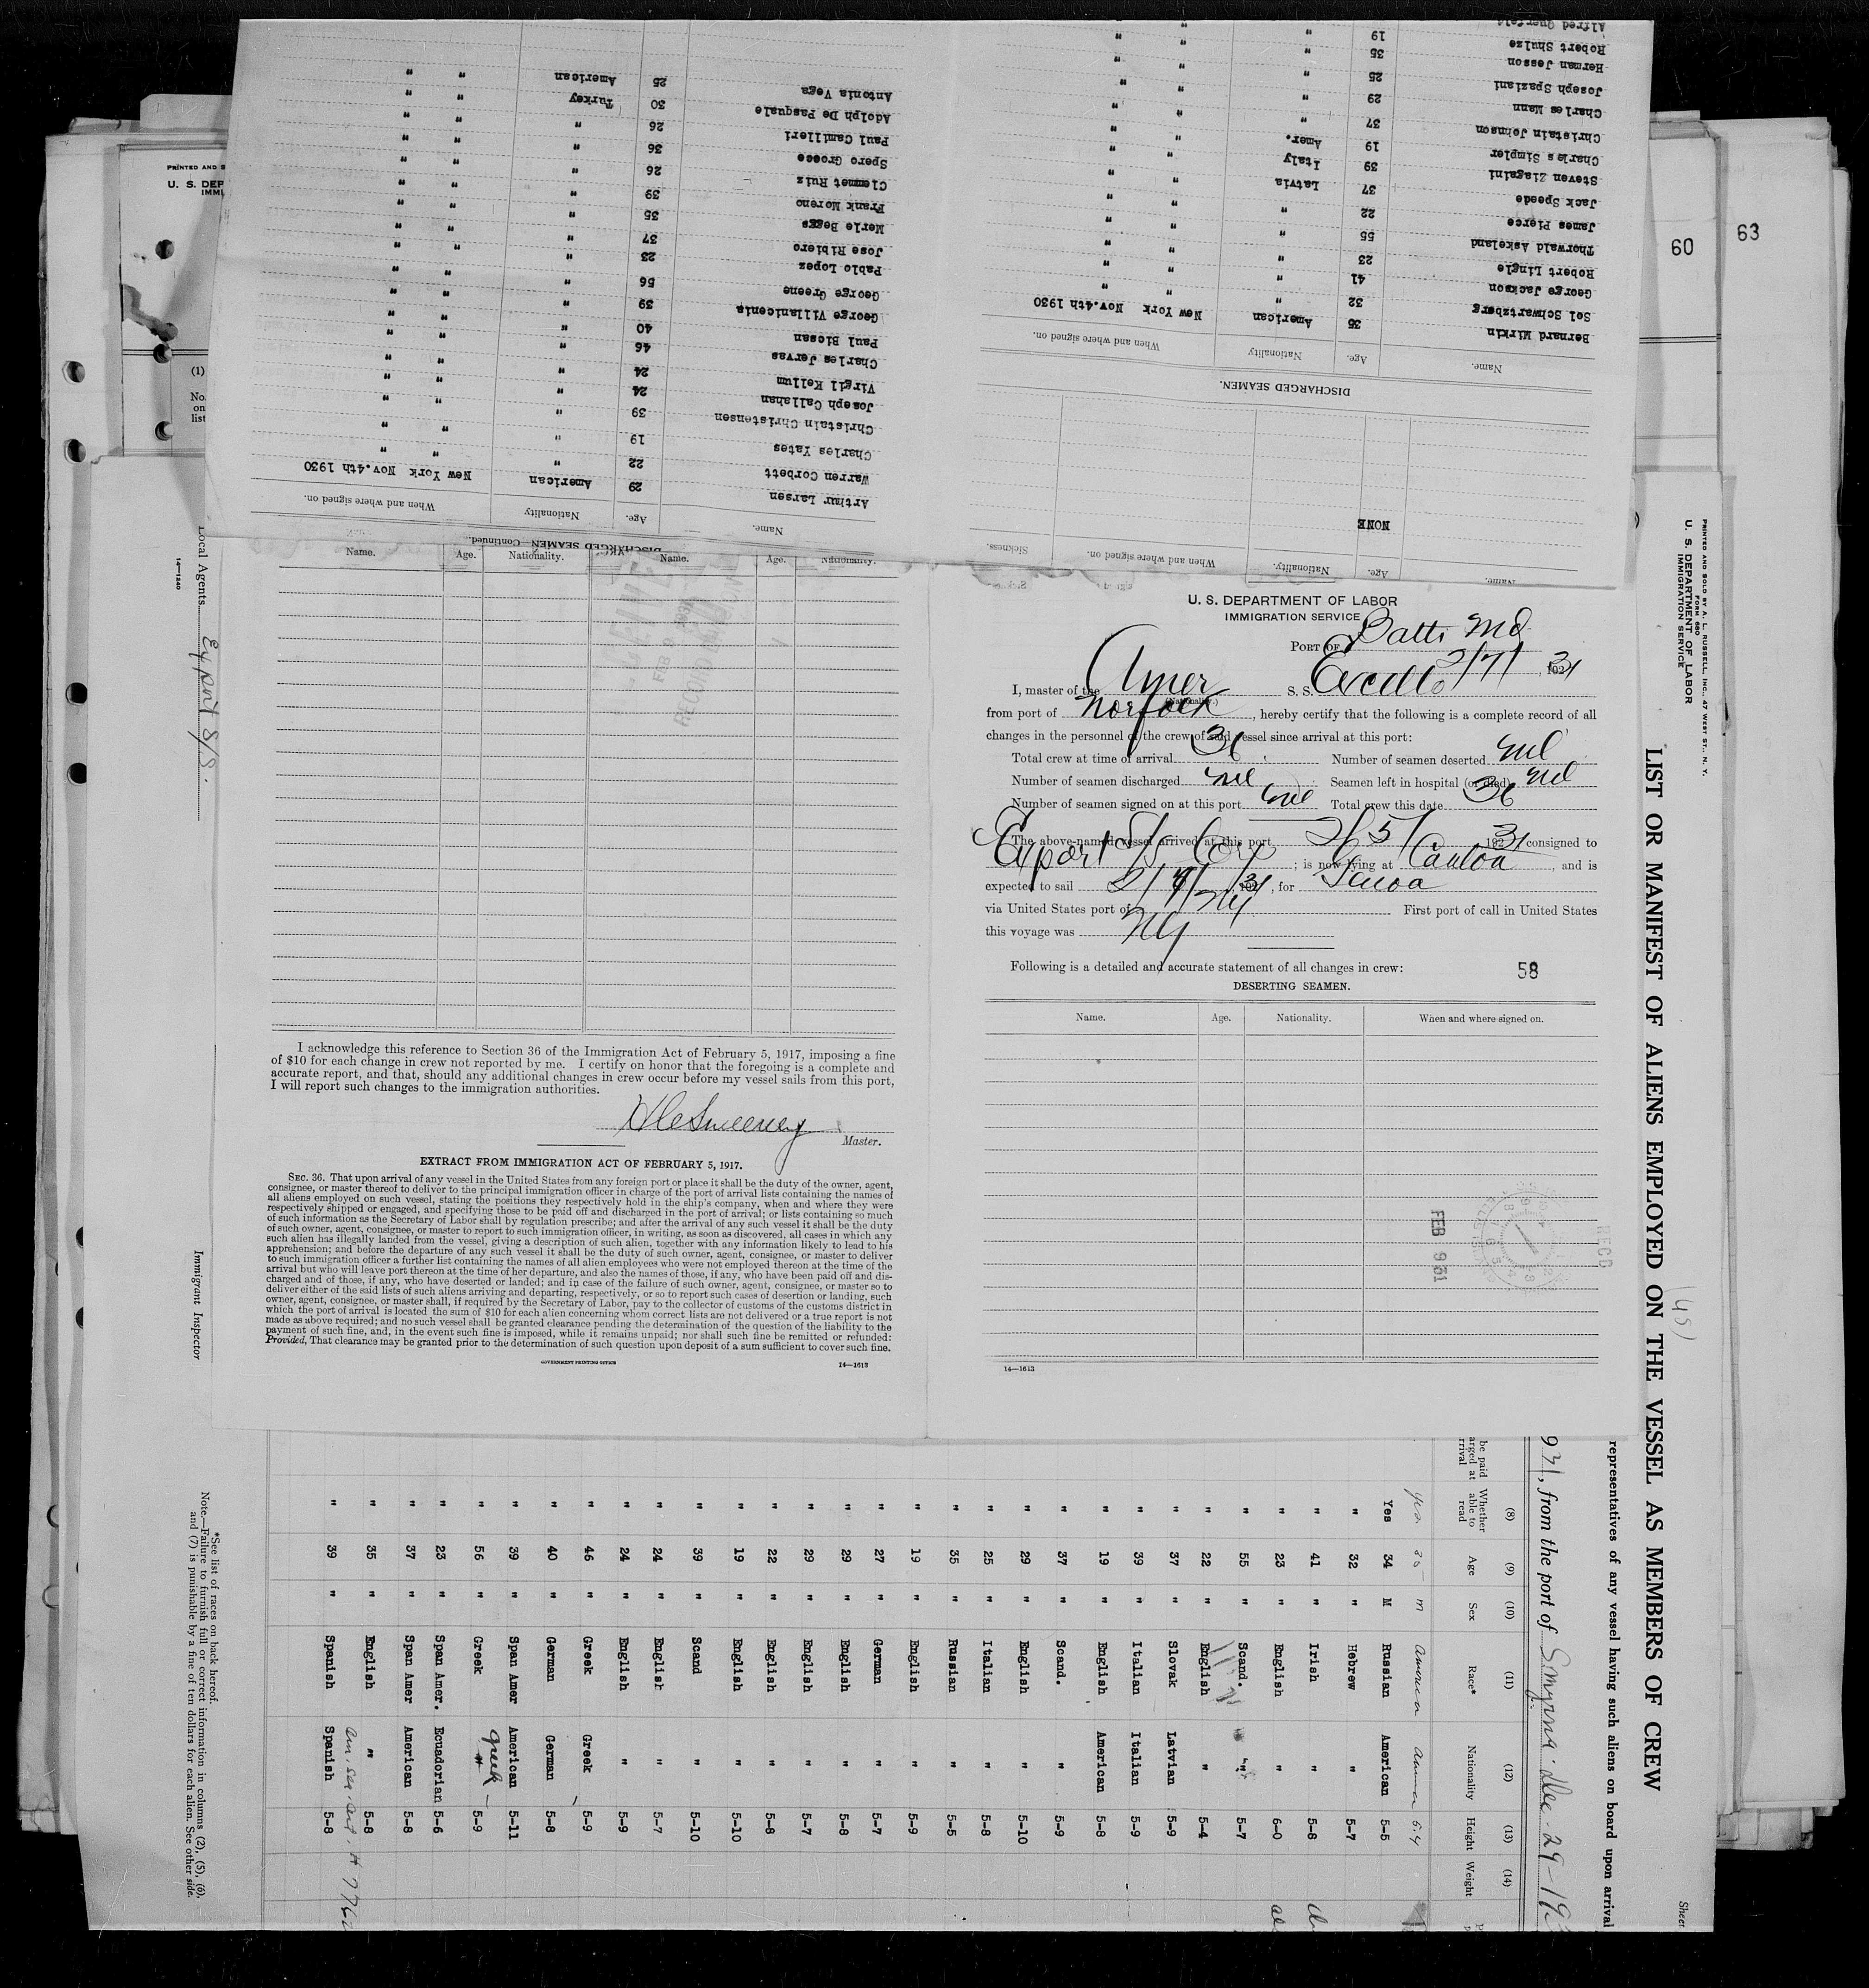 63
60
PRINTED AND S
U. S. DEP
IMMI
(1)
No.
on
list
DISCHARGED SEAMEN—Continued.
Name. Age. Nationality When and where signed on.
Arthur Larsen 29 American New York Nov.4th 1930
Warren Corbett 22 " " "
Charles Yates 19 " " "
Christain Christensen 39 " " "
Joseph Callahan 24 " " "
Virgil Kellum 24 " " "
Charles Jervas 46 " " "
Paul Bicsan 40 " " "
George Villanicenia 39 " " "
George Greene 56 " " "
Pablo Lopez 23 " " "
Jose Ribiero 37 " " "
Merle Beggs 35 " " "
Frank Moreno 39 " " "
Clemmet Ruiz 26 " " "
Spero Grosce 36 " " "
Paul Camilleri 26 " " "
Adolph De Pasquale 30 Turkey " "
Antonia Vega 25 American " "
Name. Age. Nationality. When and where signed on. Sickness.
NONE
DISCHARGED SEAMEN.
Name. Age. Nationality When and where signed on.
Bernard Mirkin 35 American New York Nov.4th 1930
Sol Schwartzberg 32 " " "
George Jackson 41 " " "
Robert Lingle 23 " " "
Thorwald Askeland 55 " " "
James Pierce 22 " " "
Jack Speede 37 Latvia " "
Steven Ziagaini 39 Italy " "
Charles Simpler 19 Amer. " "
Christain Johnson 37 " " "
Charles Mann 29 " " "
Joseph Spaziani 25 " " "
Herman Jesson 35 " " "
Robert Shulze 19 " " "
Alfred Querfeld
Name. Age. Nationality. Name. Age. Nationality.
I acknowledge this reference to Section 36 of the Immigration Act of February 5, 1917, imposing a fine
of $10 for each change in crew not reported by me. I certify on honor that the foregoing is a complete and
accurate report, and that, should any additional changes in crew occur before my vessel sails from this port,
I will report such changes to the immigration authorities.
Sweeney
Master.
EXTRACT FROM IMMIGRATION ACT OF FEBRUARY 5, 1917.
SEC. 36. That upon arrival of any vessel in the United States from any foreign port or place it shall be the duty of the owner, agent,
consignee, or master thereof to deliver to the principal immigration officer in charge of the port of arrival lists containing the names of
all aliens employed on such vessel, stating the positions they respectively hold in the ship's company, when and where they were
respectively shipped or engaged, and specifying those to be paid off and discharged in the port of arrival; or lists containing so much
of such information as the Secretary of Labor shall by regulation prescribe; and after the arrival of any such vessel it shall be the duty
of such owner, agent, consignee, or master to report to such immigration officer, in writing, as soon as discovered, all cases in which any
such alien has illegally landed from the vessel, giving a description of such alien, together with any information likely to lead to his
apprehension; and before the departure of any such vessel it shall be the duty of such owner, agent, consignee, or master to deliver
to such immigration officer a further list containing the names of all alien employees who were not employed thereon at the time of the
arrival but who will leave port thereon at the time of her departure, and also the names of those, if any, who have been paid off and dis-
charged and of those, if any, who have deserted or landed; and in case of the failure of such owner, agent, consignee, or master so to
deliver either of the said lists of such aliens arriving and departing, respectively, or so to report such cases of desertion or landing, such
owner, agent, consignee, or master shall, if required by the Secretary of Labor, pay to the collector of customs of the customs district in
which the port of arrival is located the sum of $10 for each alien concerning whom correct lists are not delivered or a true report is not
made as above required; and no such vessel shall be granted clearance pending the determination of the question of the liability to the
payment of such fine, and, in the event such fine is imposed, while it remains unpaid; nor shall such fine be remitted or refunded:
Provided, That clearance may be granted prior to the determination of such question upon deposit of a sum sufficient to cover such fine.
GOVERNMENT PRINTING OFFICE 14—1613
U. S. DEPARTMENT OF LABOR
IMMIGRATION SERVICE
PORT OF Balto Md
2/7/, 1931
I, master of the Amer S. S. Excello
(Nationality.)
from port of Norfolk, hereby certify that the following is a complete record of all
changes in the personnel of the crew of said vessel since arrival at this port:
Total crew at time of arrival 36. Number of seamen deserted nil
Number of seamen discharged nil Seamen left in hospital (or died) nil
Number of seamen signed on at this port nil Total crew this date 36
The above-named vessel arrived at this port 2/5/ 1931 consigned to
Export S/S Corp; is now lying at Canton, and is
expected to sail 2/7/, 1931, for Genoa
via United States port of NY First port of call in United States
this voyage was NY
Following is a detailed and accurate statement of all changes in crew:
58
DESERTING SEAMEN.
Name. Age. Nationality. When and where signed on.
FEB 9 31
RECD
14—1613
PRINTED AND SOLD BY A. L. RUSSELL, INC., 47 WEST ST., N. Y.
FORM 680
U. S. DEPARTMENT OF LABOR
IMMIGRATION SERVICE
LIST OR MANIFEST OF ALIENS EMPLOYED ON THE VESSEL AS MEMBERS OF CREW
Sheet
(45)
representatives of any vessel having such aliens on board upon arrival
931, from the port of Smyrna Dec-29-193
(8) (9) (10) (11) (12) (13) (14)
be paid
arged at
rrival
Whether able to read Age Sex Race* Nationality Height Weight
yes 35 m America Amer 5.4
Yes 34 M Russian American 5-5
" 32 " Hebrew " 5-7
" 41 " Irish " 5-8
" 23 " English " 6-0
" 55 " Scand. " 5-7
" 22 " English " 5-4
" 37 " Slovak Latvian 5-9
" 39 " Italian Italian 5-9
" 19 " English American 5-8
" 37 " Scand. " 5-9
" 29 " English " 5-10
" 25 " Italian " 5-8
" 35 " Russian " 5-5
" 19 " English " 5-9
" 27 " German " 5-7
" 29 " English " 5-8
" 29 " English " 5-7
" 22 " English " 5-8
" 19 " English " 5-10
" 39 " Scand " 5-10
" 24 " English " 5-7
" 24 " English " 5-9
" 46 " Greek Greek 5-9
" 40 " German German 5-8
" 39 " Span Amer American 5-11
" 56 " Greek Greek 5-9
" 23 " Span Amer. Ecuadorian 5-6
" 37 " Span Amer American 5-8
" 35 " English " 5-8
" 39 " Spanish Spanish 5-8
Local Agents Export S/S.
14—1240
Immigrant Inspector
*See list of races on back hereof.
Note.—Failure to furnish full or correct information in columns (2), (5), (6),
and (7) is punishable by a fine of ten dollars for each alien. See other side.